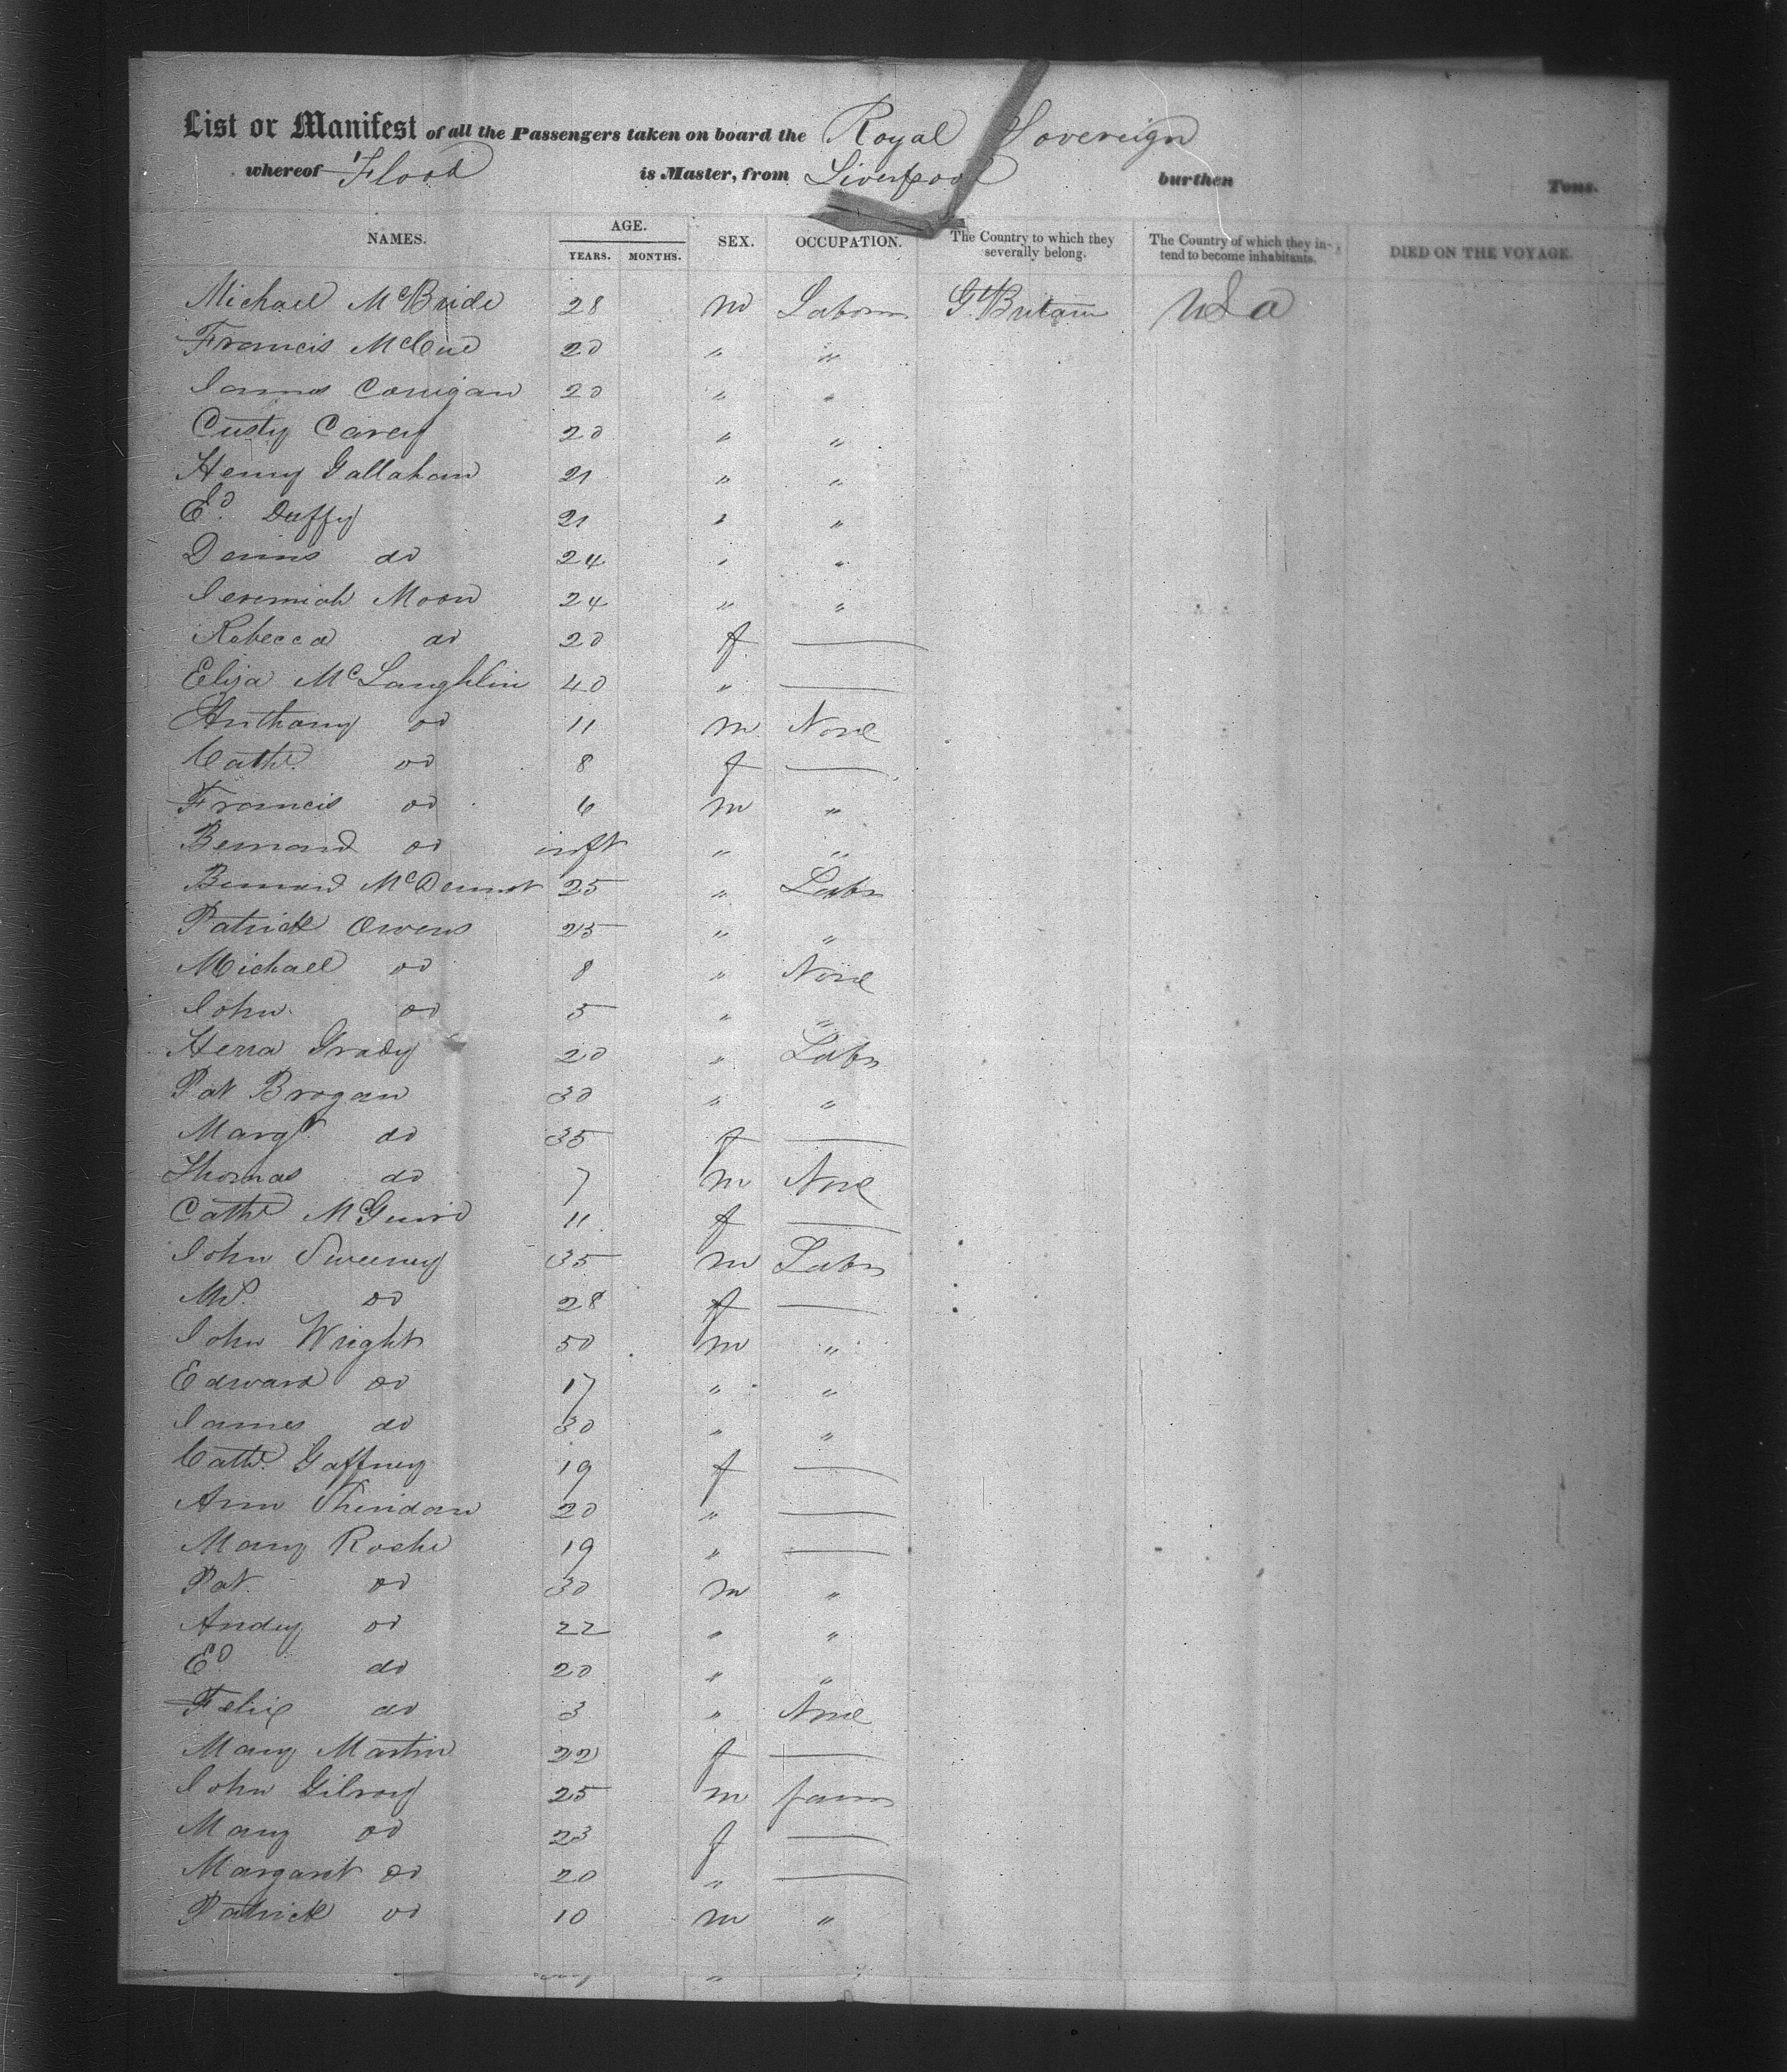 List or Manifest of all the Passengers taken on board the Royal Sovereign
whereof Flood is Master, from Liverpool burthen Tons.
NAMES. AGE. YEARS. MONTHS. SEX. OCCUPATION. The Country to which they severally belong. The Country of which they intend to become inhabitants. DIED ON THE VOYAGE.
Michael McBride 28 m Laborer Gt Britain USa
Francis McCue 20 " "
James Corrigan 20 " "
Custy Carey 20 " "
Henry Gallahan 21 " "
Ed. Duffy 21 " "
Dennis do 24 " "
Jeremiah Moon 24 " "
Rebecca do 20 f —
Eliza McLaughlin 40 " —
Anthony do 11 m None
Cathe. do 8 f —
Francis do 6 m "
Bernard do inft " "
Bernard McDermot 25 " Labr
Patrick Owens 25 " "
Michael do 8 " None
John do 5 " "
Grady 20 " Labr
Pat Brogan 30 " "
Margt do 35 f —
Thomas do 7 m None
Cathe McGuire 11 f —
John Sweeney 35 m Labr
do 28 f —
John Wright 50 m "
Edward do 17 " "
James do 30 " "
Cathe. Gaffney 19 f —
Ann Sheridan 20 " —
Mary Roche 19 " —
Pat do 30 m "
Andy do 22 " "
Ed do 20 " "
Felix do 3 " None
Mary Martin 22 f —
John Gilroy 25 m farmr
Mary do 23 f —
Margaret do 20 " —
Patrick do 10 m "